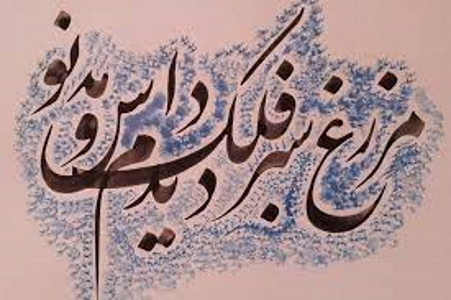 مزرع سبز فلک دیدم و داس مه نو